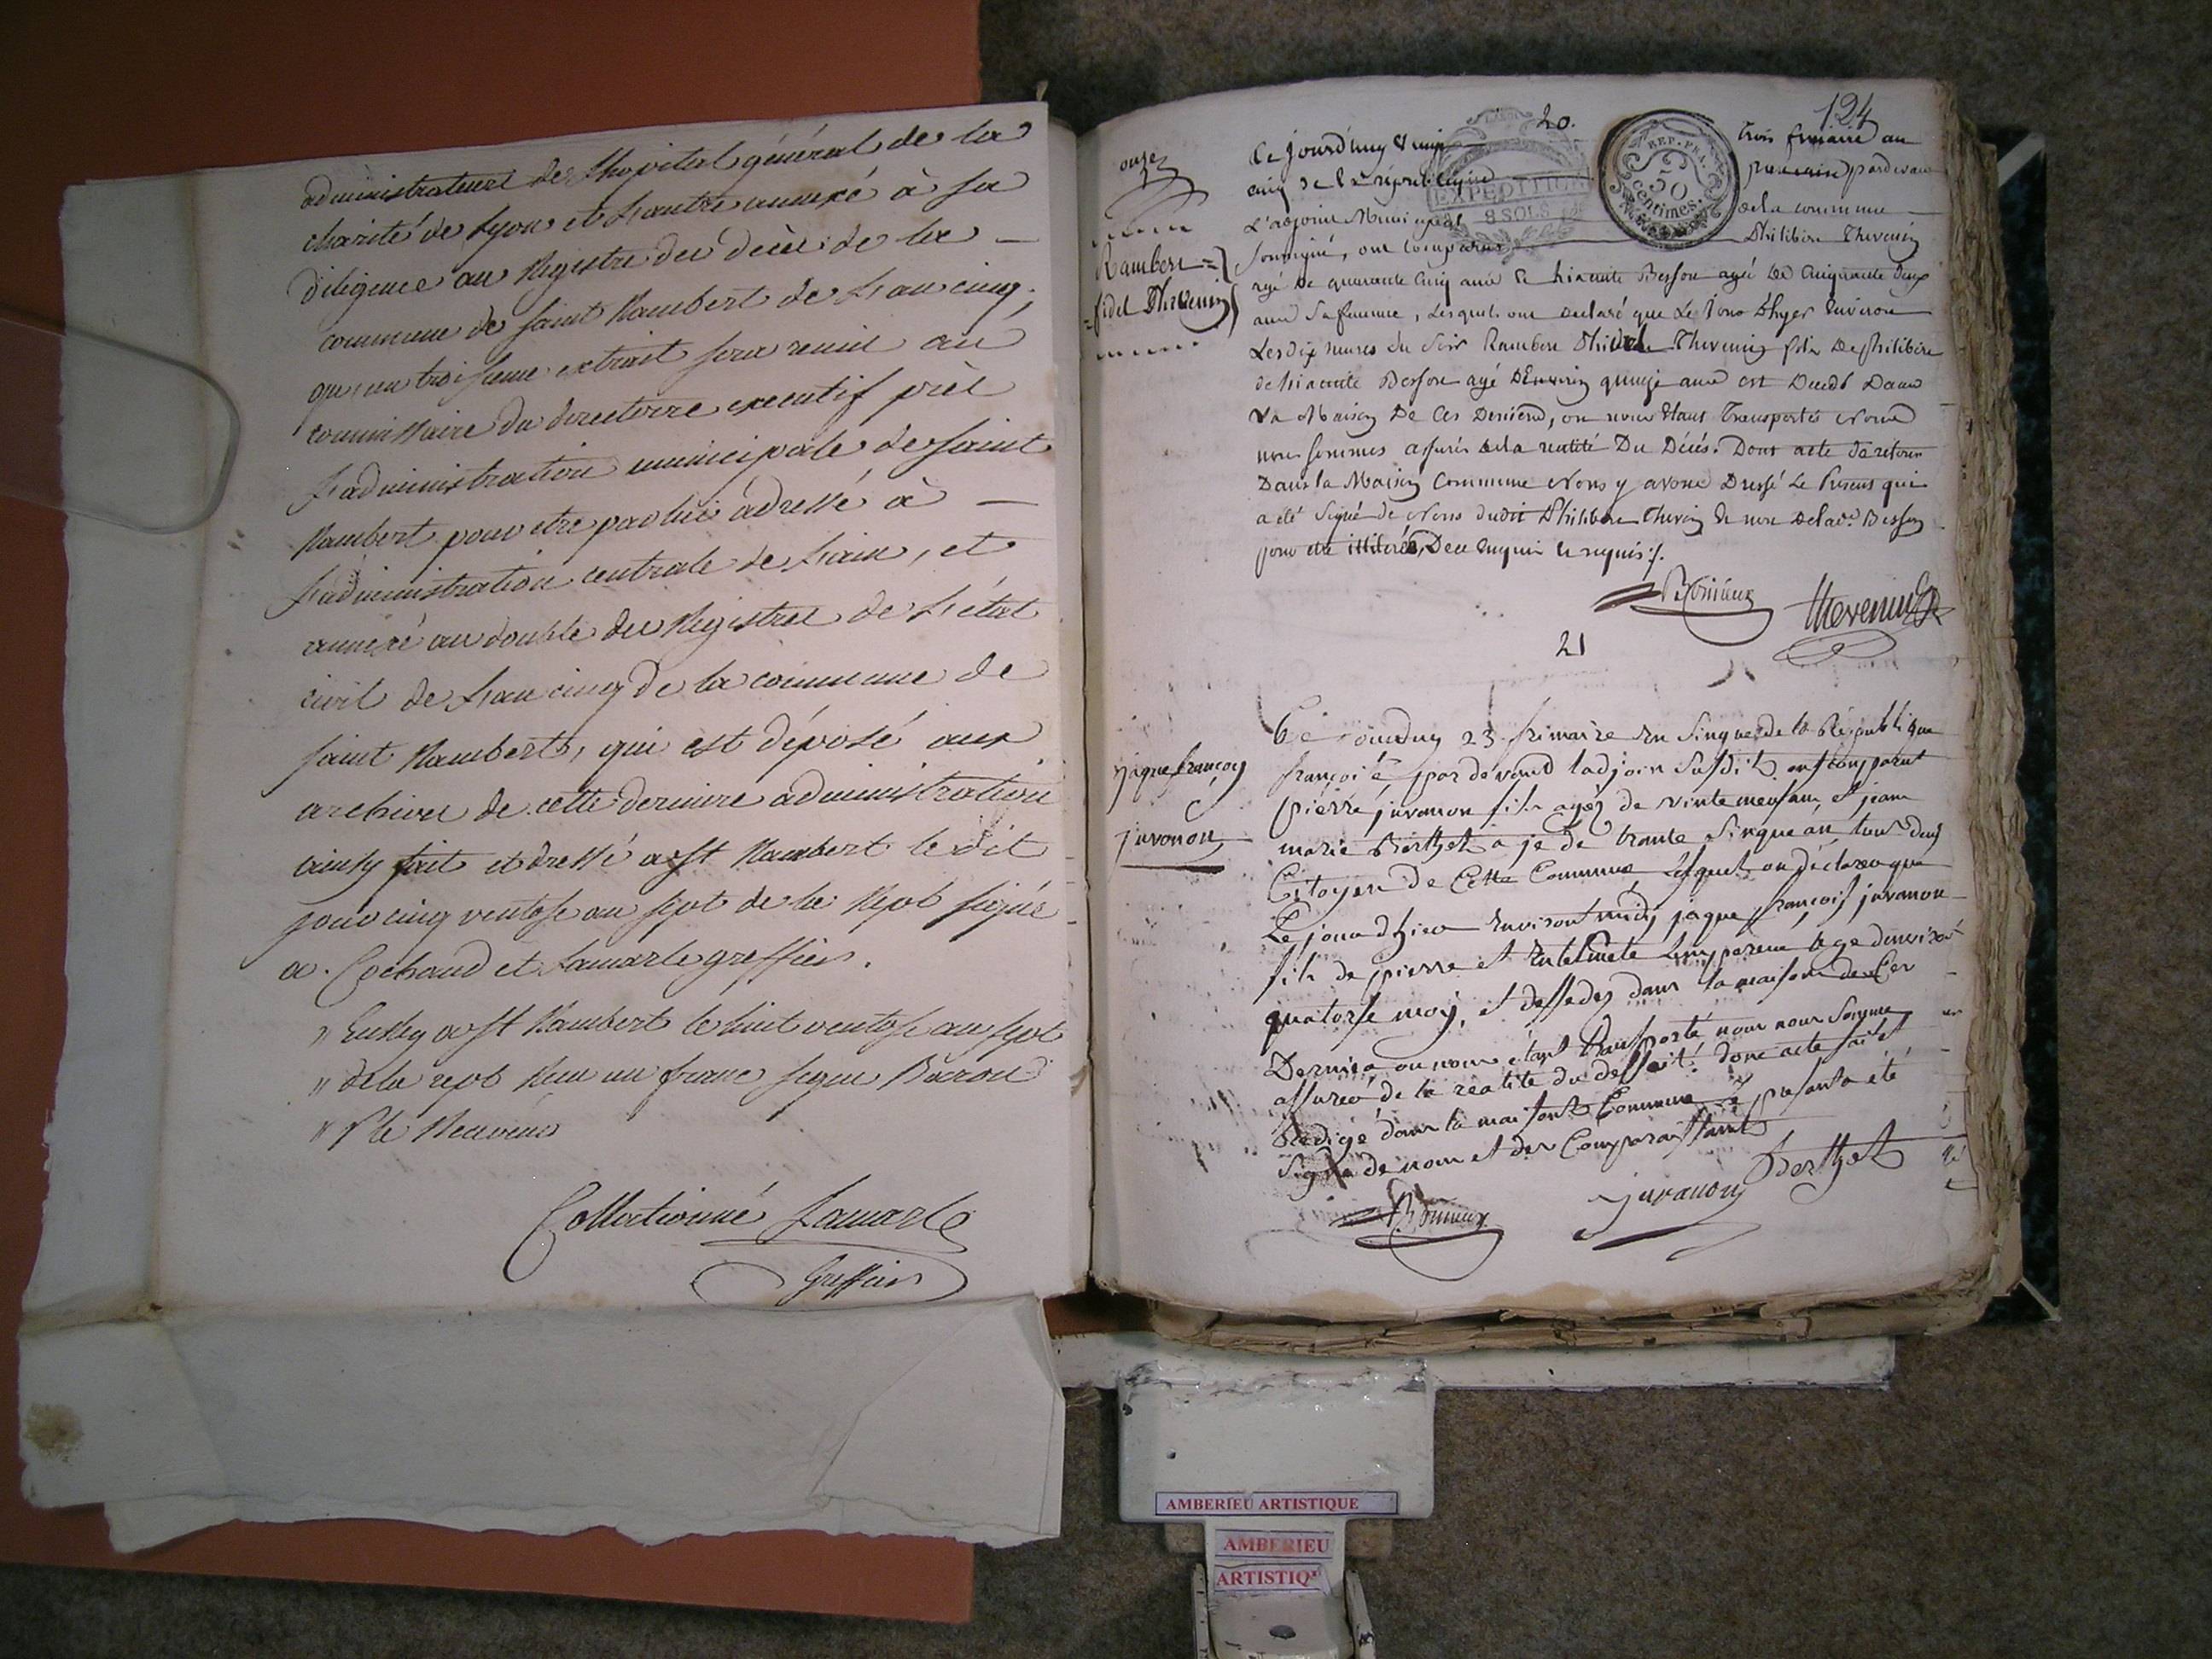 administrateurs de Lhopital général de la
charité de Lyon et Lautre annexé à sa
diligence au Registre des décès de la
commune de saint Rambert de Lan cinq,
qu'un troisieme extrait sera remis au
commissaire du directoire executif près
L'administration municipale de saint
Rambert pour etre par lui adressé à
L'administration centrale de Lain, et
annexé au double des Registres de L'état
civil de Lan cinq de la commune de
saint Rambert, qui est déposé aux
archives de cette derniere administration
ainsy fait et dressé a st Rambert le dit
jour cinq ventose an sept de la Repb signé
Cochaud et Lamarle greffier.
" a st Rambert le huit ventose an sept
" de la repb Recu un franc signé
"
Collationné Lamarle
Greffier
124
20.
onze
Ce jourd'huy vingt trois frimaire an
cinq de la république par devant
L'adjoint Municipal de la commune
soussigné, ont comparus Philibert Thevenin
Rambert
fidel Thevenin
agé de quarante cinq ans et hiacinte Besson agé de cinquante deux
ans sa femme, Lesquels ont declaré que Le jour d'hyer environ
Les dix heures du soir Rambert Thevenin fils de philibert
de hiacinte Besson agé D'environ quinze ans est Decedé Dans
La Maison De Ces Derniers, ou nous étant Transportés Nous
nous sommes assurés de la realité Du Décés. Dont acte de retour
Dans la Maison Commune Nous y avons Dressé Le Present qui
a été signé de Nous dudit Philibert Thevenin et non de lad.e Besson
pour etre illiterée, De ce enquis et requis ./.
Thevenin
EXPEDITION
8 SOLS
REP. FRA.
50
centimes.
21
jaque françoy
juvanon
Ce jourduy 23 frimaire an sinque de la République
françoise par devand ladjoin susdit ont comparut
pierre juvanon fils agés de vinte neuf ans et jean
marie Berthet a je de trante sinque an tous deuy
Citoyen de Cette Commune Lesquels on déclaré que
Le jour dhier environt midy jaque françois juvanon
fils de pierre et Lempereur age denviront
quatorse moy, et dessedes dans la maison de Ces
Dernier ou nous étant transporté nous nous somme
assuré de la réalité du dessait. donc acte fait et
Redigé dans la maisont Commune le presant a été
signé de nous et des Comparaissant
Berthet
juvanon
AMBERIEU ARTISTIQUE
AMBERIEU
ARTISTIQUE